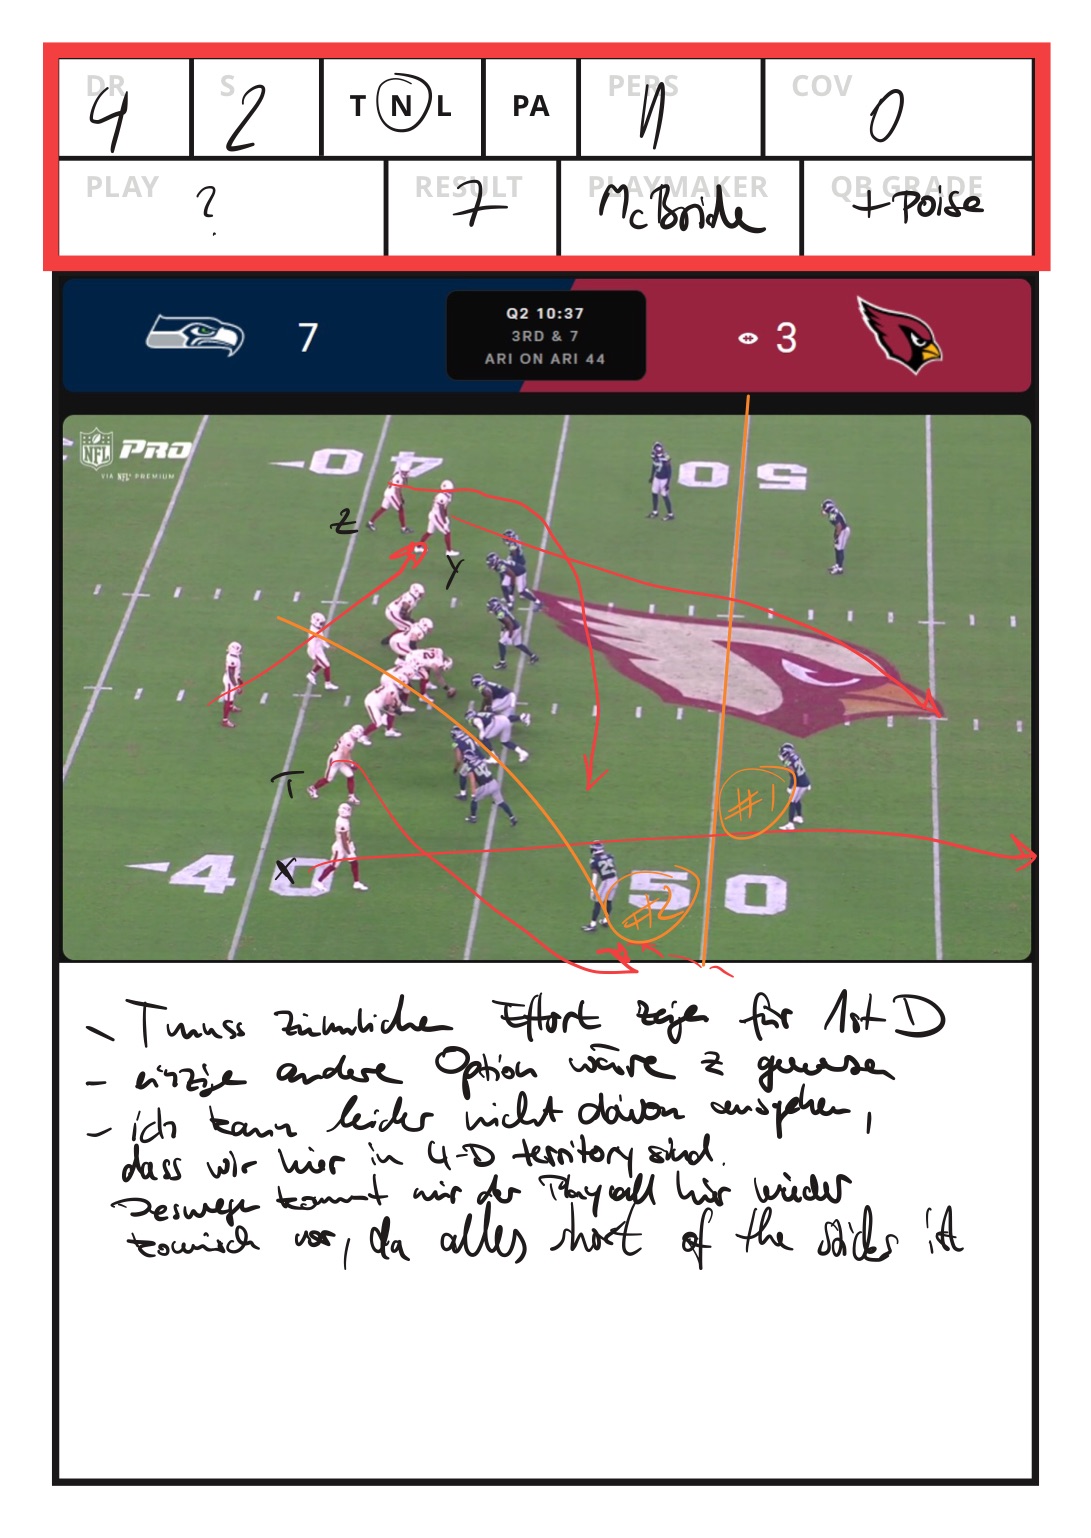 DR S T N L PA PERS COV
4 2 11 0
PLAY RESULT PLAYMAKER QB GRADE
? 7 McBride + Poise
7 Q2 10:37 3
3RD & 7
ARI ON ARI 44
NFL PRO
VIA NFL+ PREMIUM
4 0 5 0
Z
Y
T
#1
X
4 0 5 0
#2
- T muss ziemlichen Effort zeigen für 1st D
- einzige andere Option wäre Z gewesen
- ich kann leider nicht davon ausgehen,
dass wir hier in 4-D territory sind.
Deswegen kommt mir der Playcall hier wieder
komisch vor, da alles short of the sticks ist